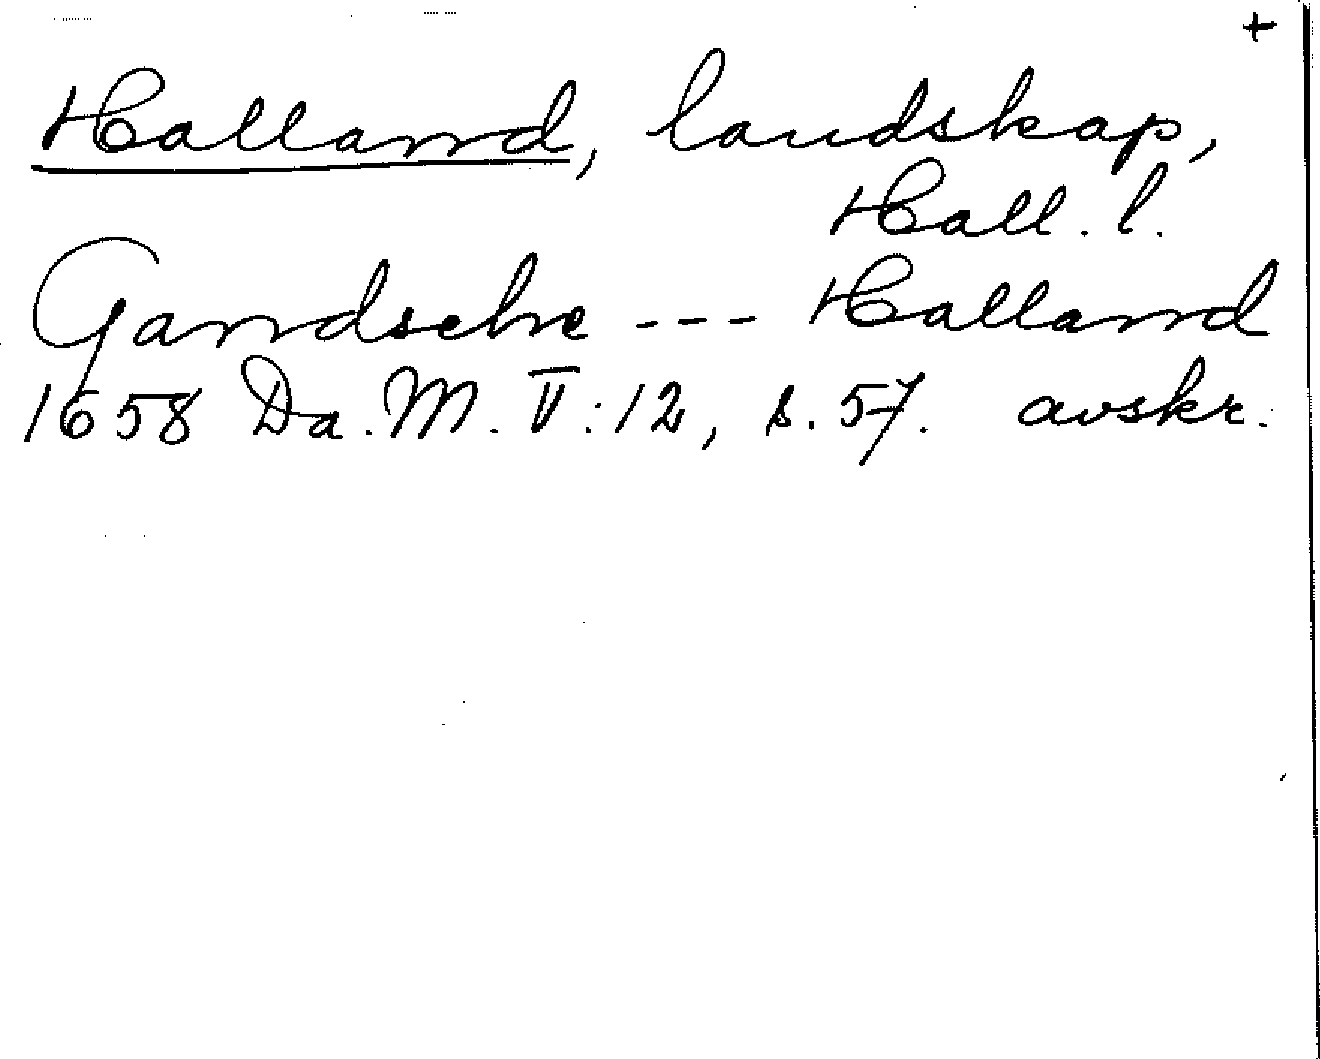 +
Halland, landskap,
Hall. l.
Gandsche --- Halland
1658 Da. M. V:12, s. 57. avskr.